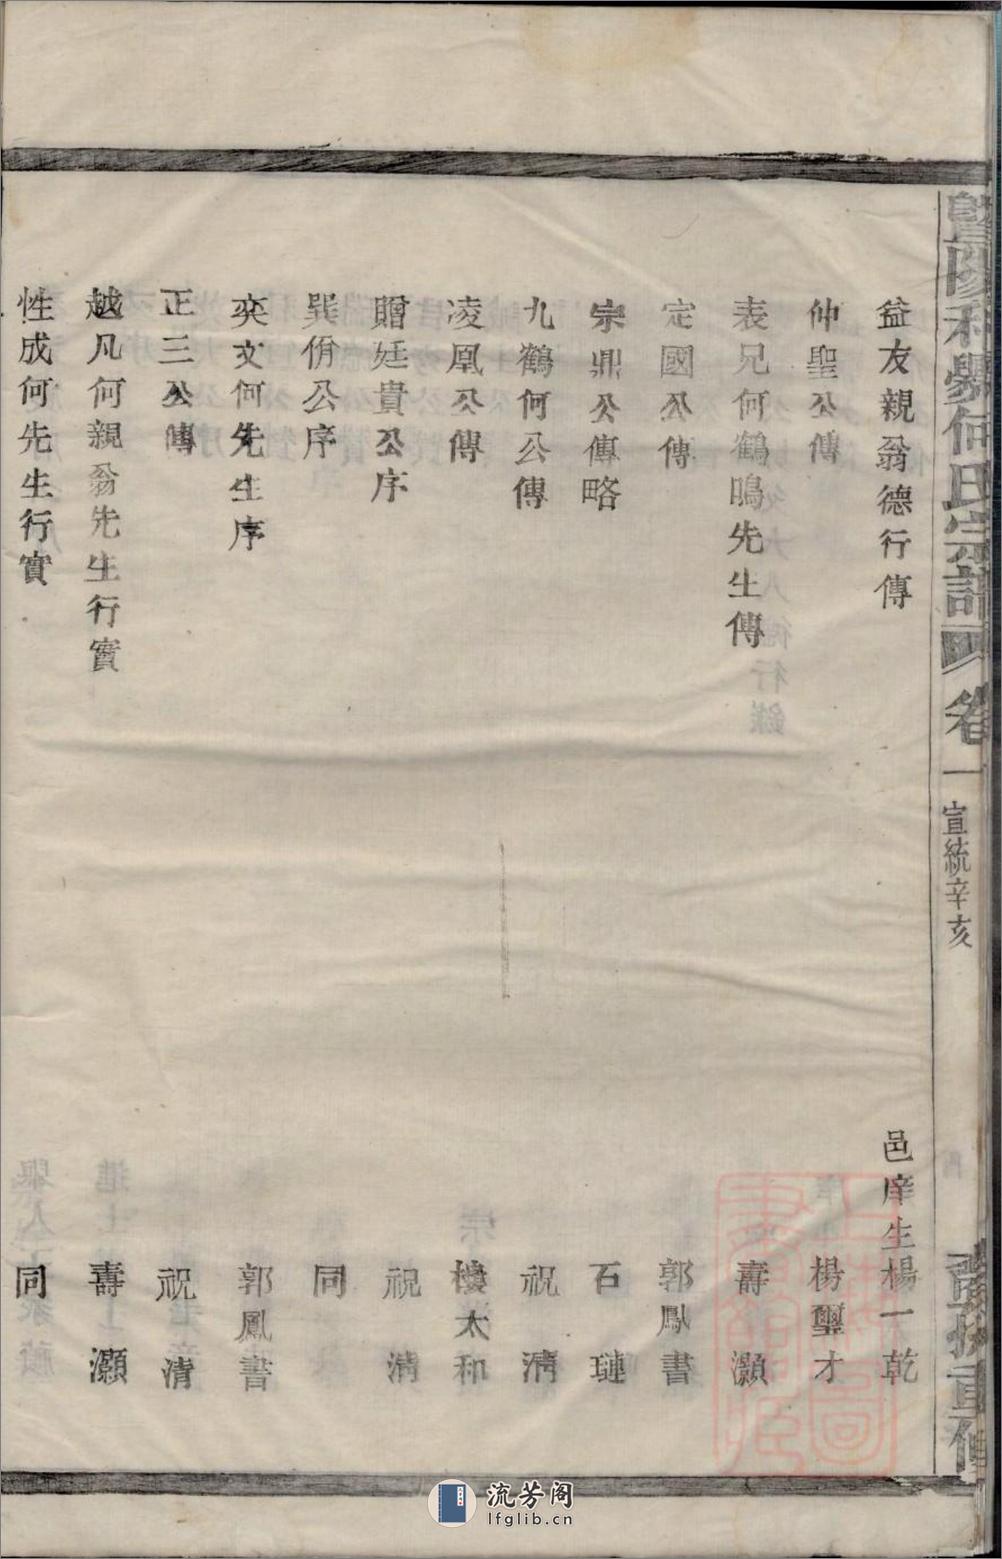 暨陽何氏宗譜 卷一 宣統辛亥
益友親翁德行傳 邑庠生楊一乾
仲聖公傳 楊璽才
表兄何鶴鳴先生傳 壽灝
定國公傳 郭鳳書
宗鼎公傳略 石璉
九鶴何公傳 祝淸
凌凰公傳 樓太和
贈廷貴公序 祝淸
巽佾公序 同
奕文何先生序 郭鳳書
正三公傳 祝清
越凡何親翁先生行實 壽灝
性成何先生行實 同
流芳阁
lfglib.cn